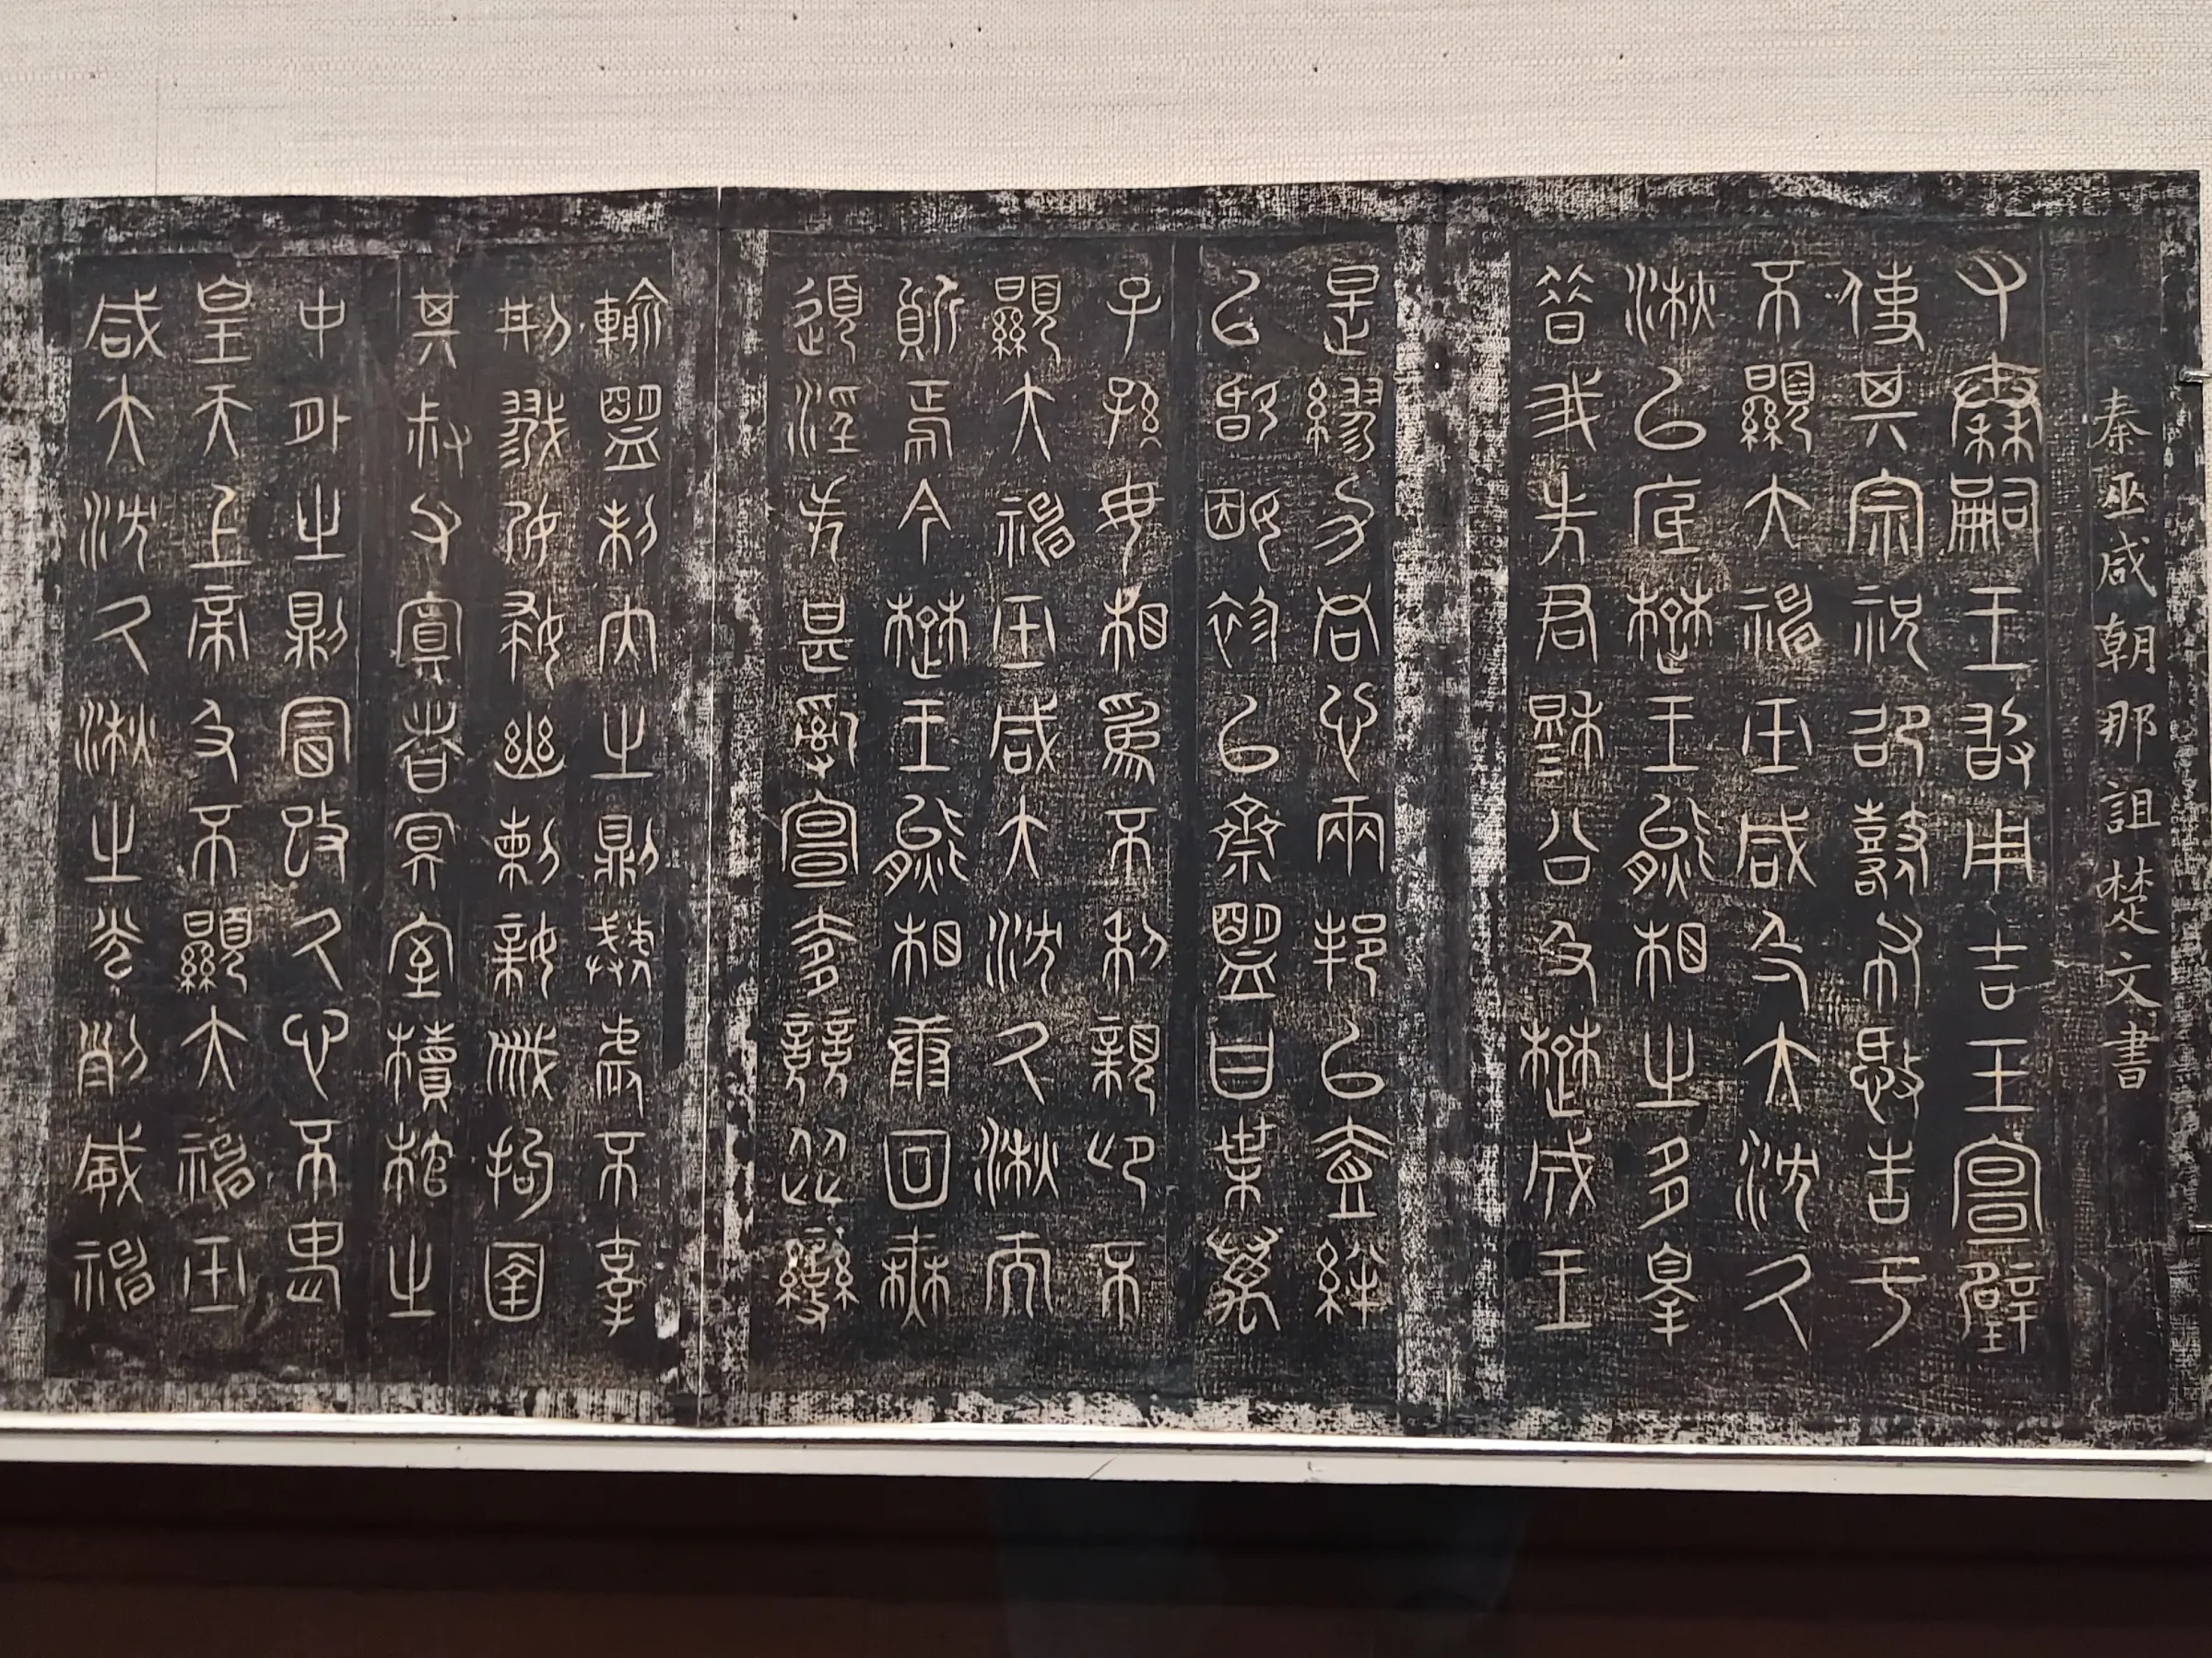 秦巫咸朝那詛楚文書
又秦嗣王敢用吉玉宣璧
使其宗祝邵鼛布憼告于
不顯大神巫咸及大沈久
湫以底楚王熊相之多辠
昔我先君穆公及楚成王
是繆力同心兩邦以壹絆
以婚姻袗以齋盟曰葉萬
子孫毋相為不利親卬不
顯大神巫咸大沈久湫而
質焉今楚王熊相康回無
道淫失甚亂宣侈競從變
輸盟制內之則虣虐不辜
刑戮孕婦幽刺親戚拘圉
其叔父寘者冥室櫝棺之
中外之則冒改久心不畏
皇天上帝及不顯大神巫
咸大沈久湫之光列威神